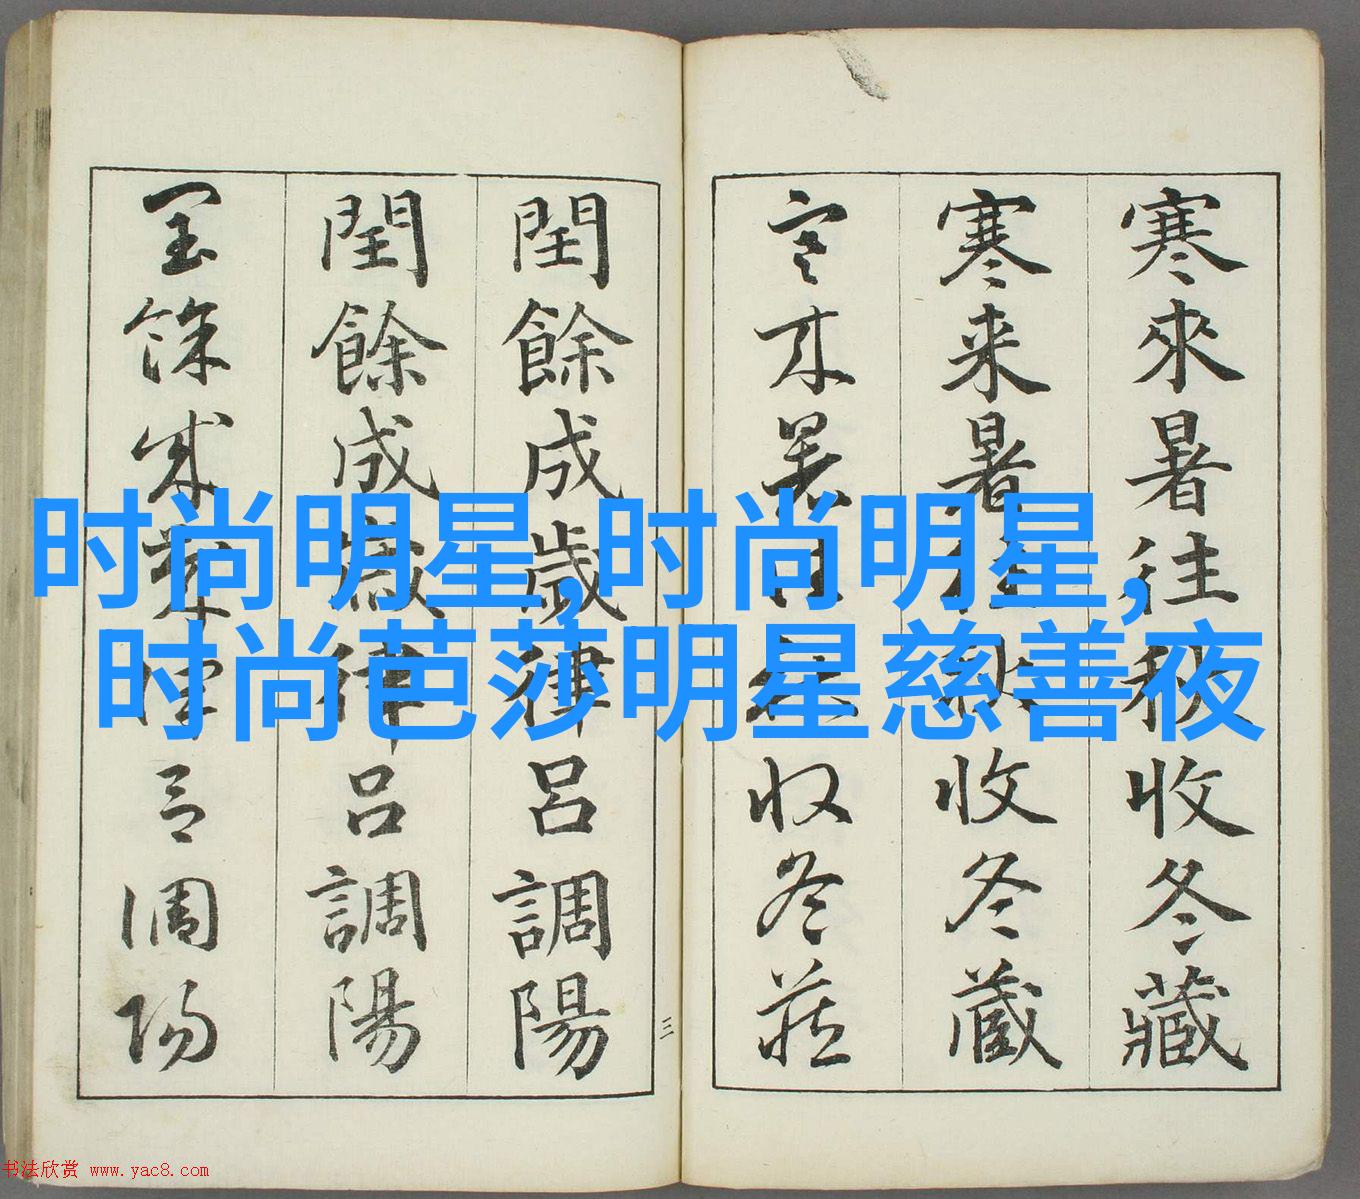 寒來暑往秋收冬藏
寒来暑往秋收冬蔵
寒来暑往秋收冬藏
閏餘成歲律呂調陽
閏餘成歲律呂調陽
閏餘成歲律呂調陽
三
时尚明星,时尚明星,
时尚芭莎明星慈善夜
书法欣赏 www.yac8.com